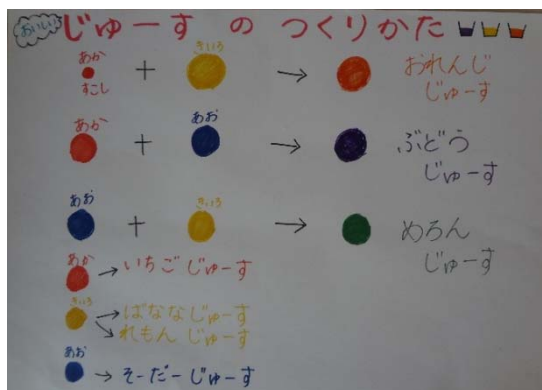 おいしい じゅーす の つくりかた
あか すこし + きいろ → おれんじ じゅーす
あか + あお → ぶどう じゅーす
あお + きいろ → めろん じゅーす
あか → いちご じゅーす
きいろ → ばなな じゅーす
→ れもん じゅーす
あお → そーだー じゅーす